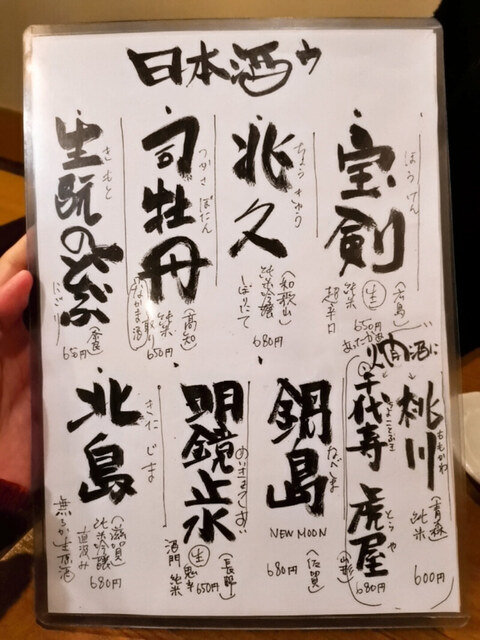 日本酒ウ
宝剣
ほうけん
(広島)
生
純米
超辛口
650円
兆久
ちょうきゅう
(和歌山)
純米吟醸
しぼりたて
680円
司牡丹
つかさぼたん
(高知)
純米
650円
生酛のどぶ
きもと
にごり
(奈良)
650円
燗酒に
桃川
ももかわ
(青森)
純米
600円
千代寿
虎屋
とらや
(山形)
680円
鍋島
なべしま
NEW MOON
(佐賀)
680円
明鏡止水
めいきょうしすい
(長野)
生
純米
650円
北島
きたじま
(滋賀)
純米吟醸
直汲み
無ろか生原酒
680円